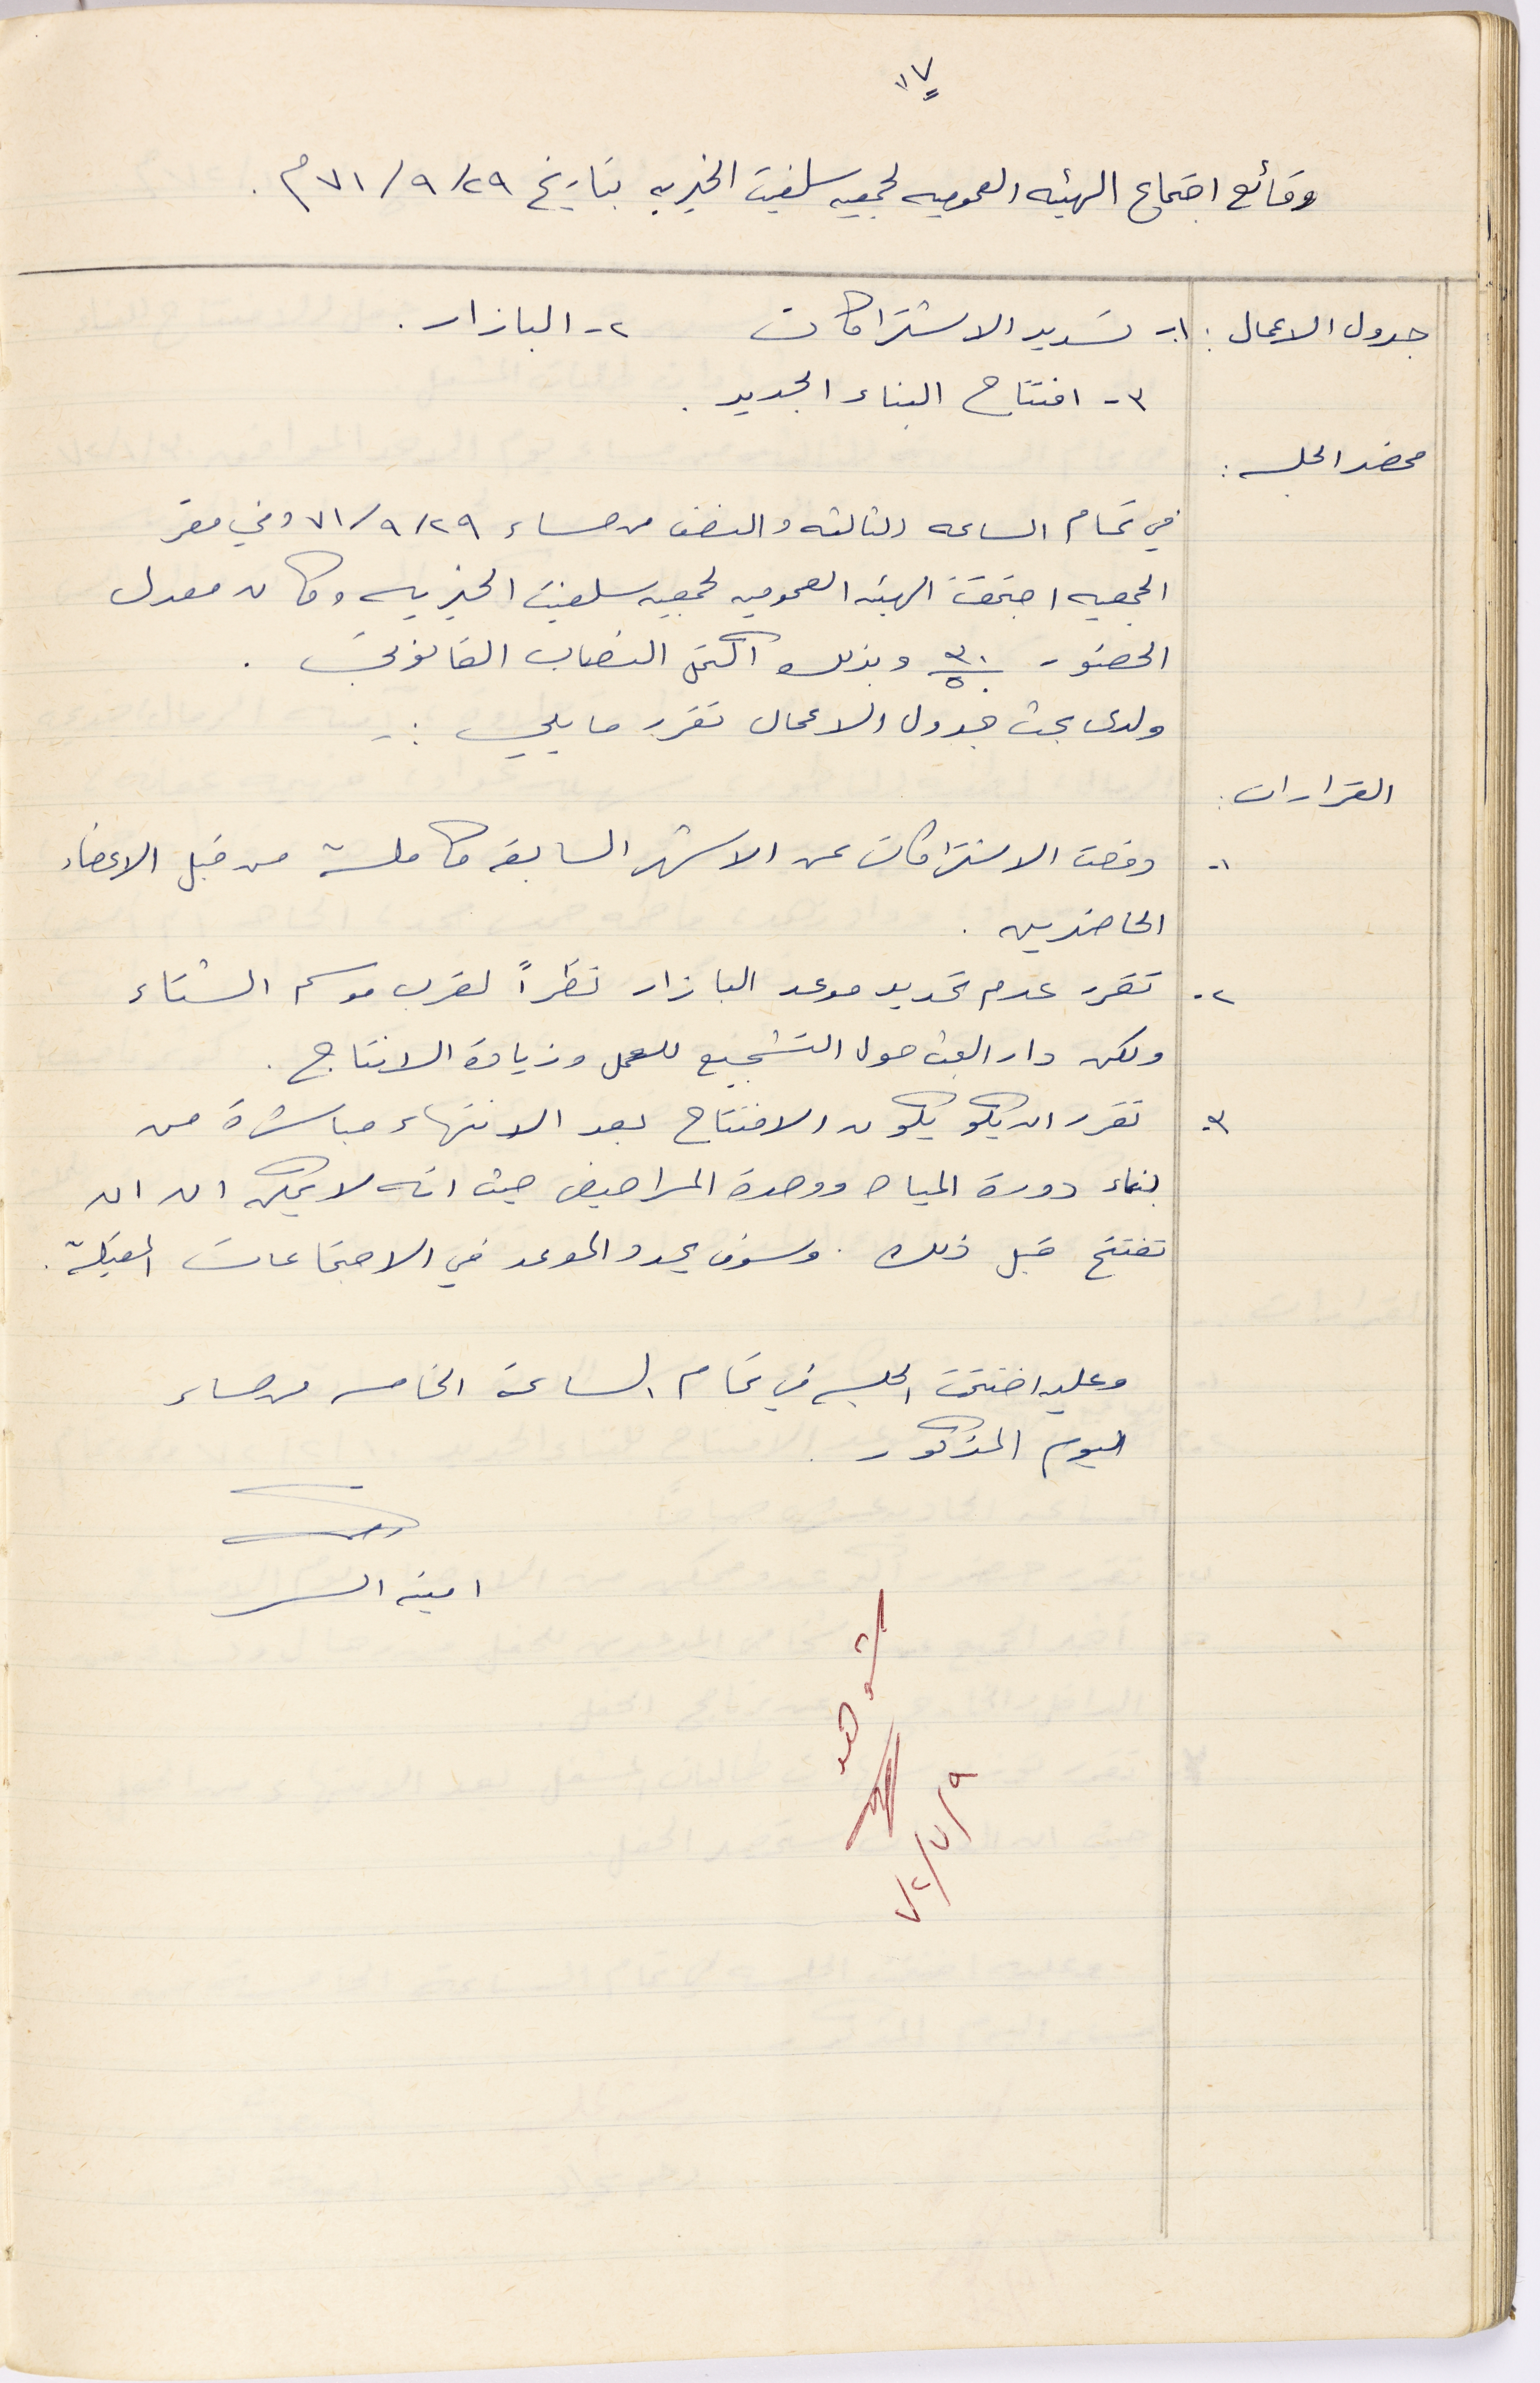 ١٧
وقائع اجتماع الهيئه العموميه لجمعيه سلفيت الخيريه بتاريخ ٢٩/٩/٧١م.
جدول الاعمال: ١- تسديد الاشتراكات ٢- البازار.
٣- افتتاح البناء الجديد.
محضر الجلسه:
في تمام الساعه الثالثه والنصف من مساء ٢٩/٩/٧١ وفي مقر
الجمعيه اجتمعت الهيئه العموميه لجمعيه سلفيت الخيريه وكان معدل
الحضور ٣٠/٥٠ وبذلك اكتمل النصاب القانوني.
ولدى بحث جدول الاعمال تقرر ما يلي:-
القرارات:
١- دفعت الاشتراكات عن الاشهر السابقه كاملة من قبل الاعضاء
الحاضرين.
٢- تقرر عدم تحديد موعد البازار نظراً لقرب موسم الشتاء
ولكن دار البحث حول التشجيع للعمل وزيادة الانتاج.
٣- تقرر ان يكو يكون الافتتاح بعد الانتهاء مباشرة من
بناء دورة المياه ووحدة المراحيض حيث انه لا يمكن ان ان
تفتتح قبل ذلك. وسوف يحدد الموعد في الاجتماعات المقبلة.
وعليه اختتمت الجلسه في تمام الساعة الخامسه من مساء
اليوم المذكور.
امينه السر
شوهد
٩/٧/٧٢